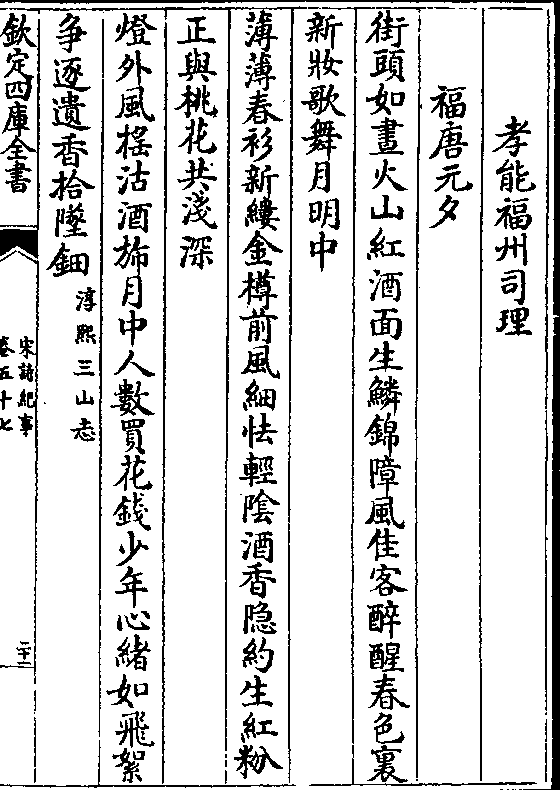 孝能福州司理
福唐元夕
街頭如畫火山紅酒面生鱗錦障風佳客醉醒春色裏
新妝歌舞月明中
薄薄春衫新縷金樽前風細怯輕陰酒香隐約生紅粉
正與桃花共淺深
燈外風揺沽酒斾月中人數買花錢少年心緒如飛絮
争逐遺香拾墜鈿淳熙三山志
欽定四庫全書
宋詩紀事
卷五十七
二十一